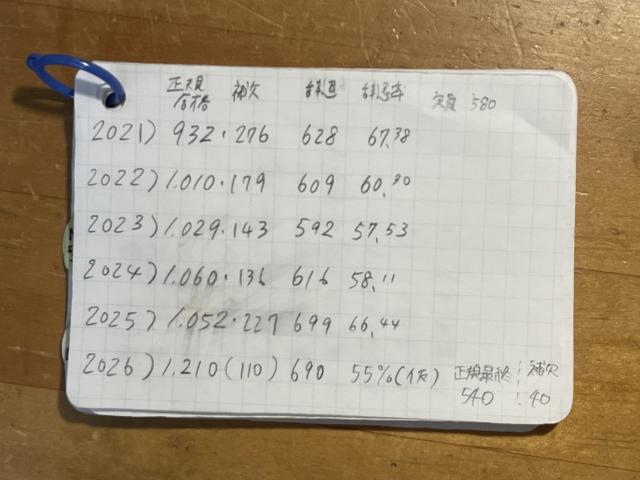 正規 補欠 辞退 辞退率 定員 580
合格
2021) 932・276 628 67.38
2022) 1.010・179 609 60.30
2023) 1.029・143 592 57.53
2024) 1.060・136 616 58.11
2025) 1.052・227 699 66.44
2026) 1.210(110) 690 55%(仮) 正規最終 補欠
540 40